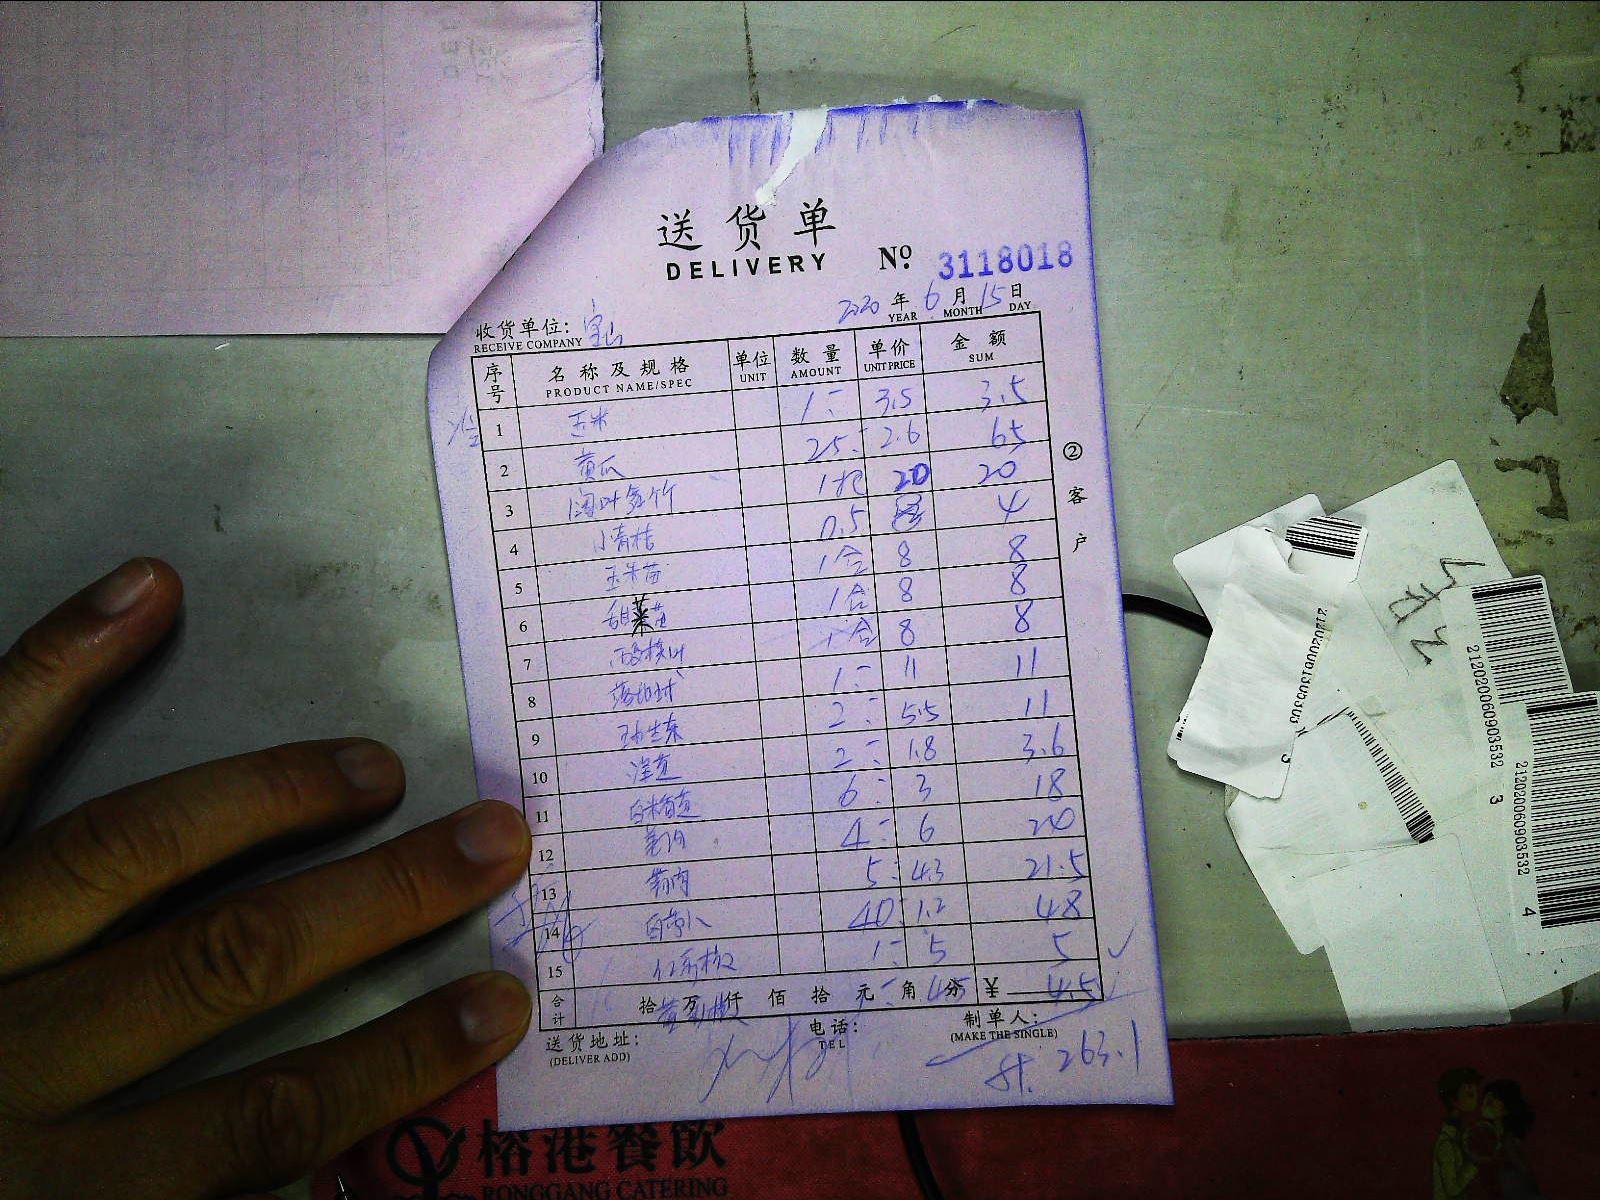 送货单
DELIVERY
Nº 3118018
2020 年 6 月 15 日
YEAR MONTH DAY
收货单位: 宝山
RECEIVE COMPANY
序号 名称及规格 单位 数量 单价 金额
PRODUCT NAME/SPEC UNIT AMOUNT UNIT PRICE SUM
1 玉米 1 3.5 3.5
2 黄瓜 25 2.6 65
3 20 20
4 小青桔 0.5 4
5 玉米苗 1合 8 8
6 甜 苗 1合 8 8
7 1合 8 8
8 落地球 1 11 11
9 球生菜 2 5.5 11
10 洋葱 2 1.8 3.6
11 6 3 18
12 姜肉 4 6
13 5 4.3 21.5
14 白萝卜 40 1.2 48
15 1 5 5
合计 拾 万 仟 佰 拾 元 角 分 ¥ 4.5
送货地址:
(DELIVER ADD)
电话:
TEL
制单人:
(MAKE THE SINGLE)
263.1
②客户
榕港餐饮
RONGGANG CATERING
212020060903532 3
212020060903532 4